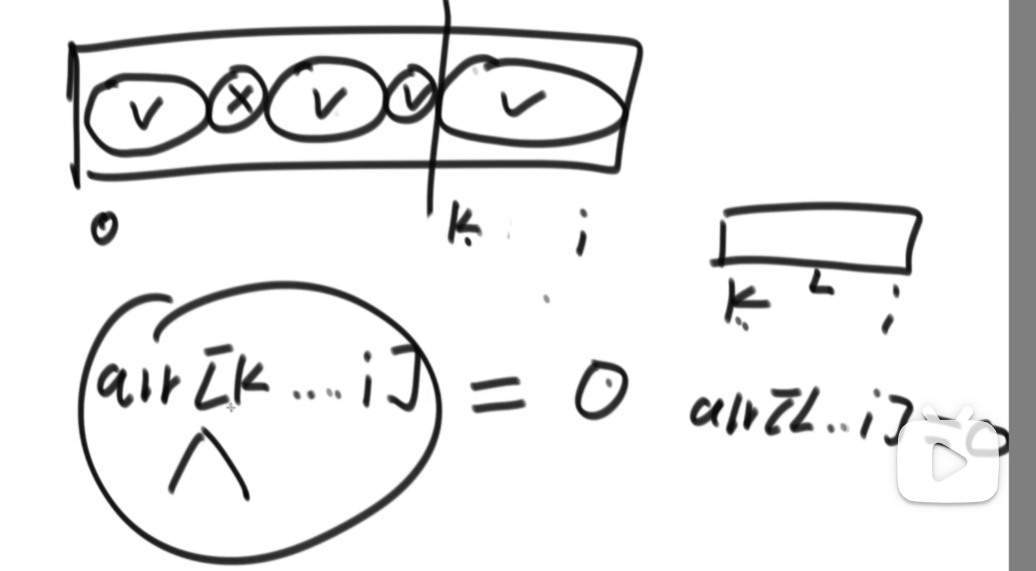 V X V V V
0 K i
K L i
arr[K...i] = 0
arr[L..i] =0
^